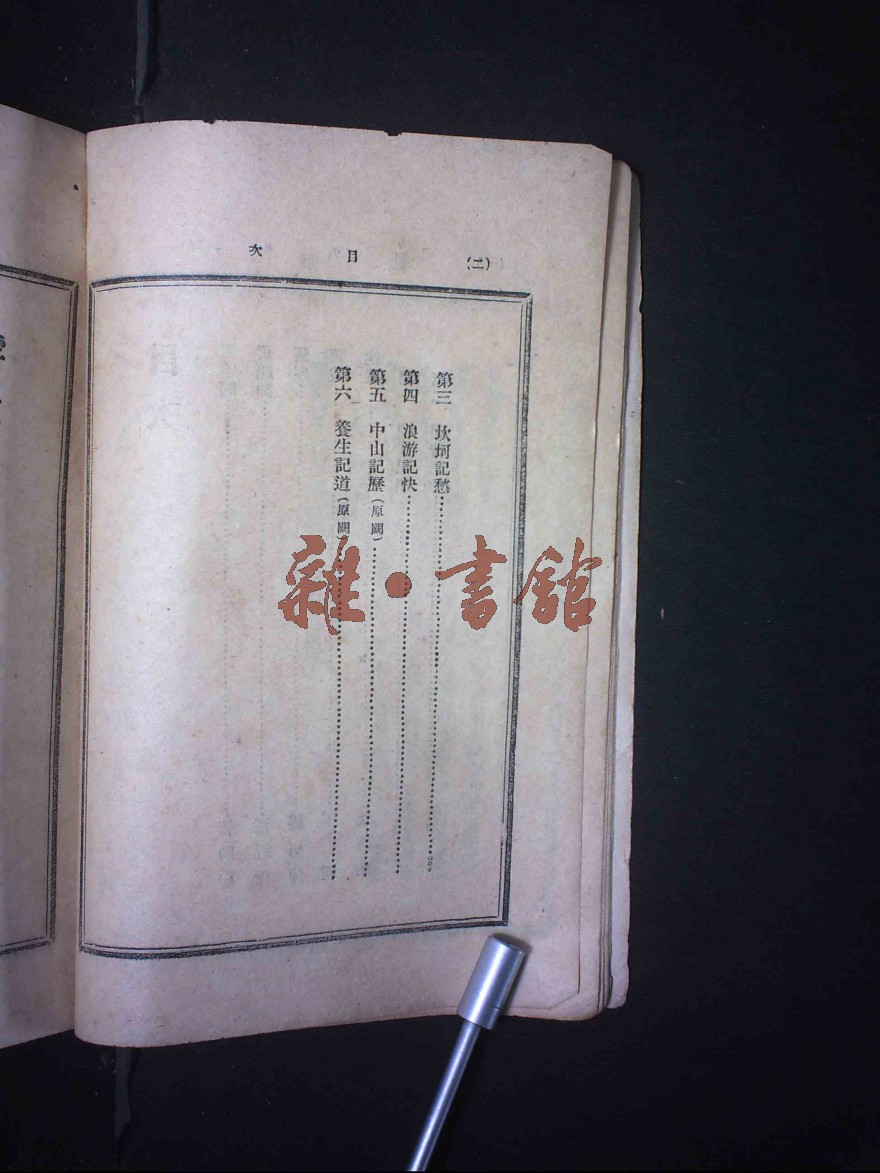 (二) 目次
第三 坎坷記愁
第四 浪游記快
第五 中山記歷(原闕)
第六 養生記道(原闕)
雜·書館